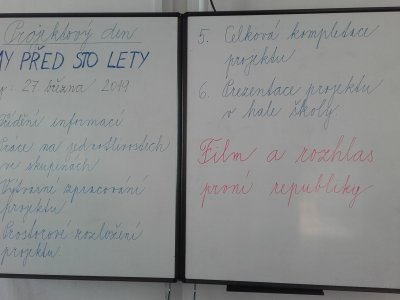 Projektový den
MY PŘED STO LETY
27. března 2019
třídění informací
Práce na jednotlivostech
ve skupinách
Výtvarné zpracování
projektu
Prostorové rozložení
projektu
5. Celková kompletace
projektu
6. Prezentace projektu
v hale školy
Film a rozhlas
první republiky